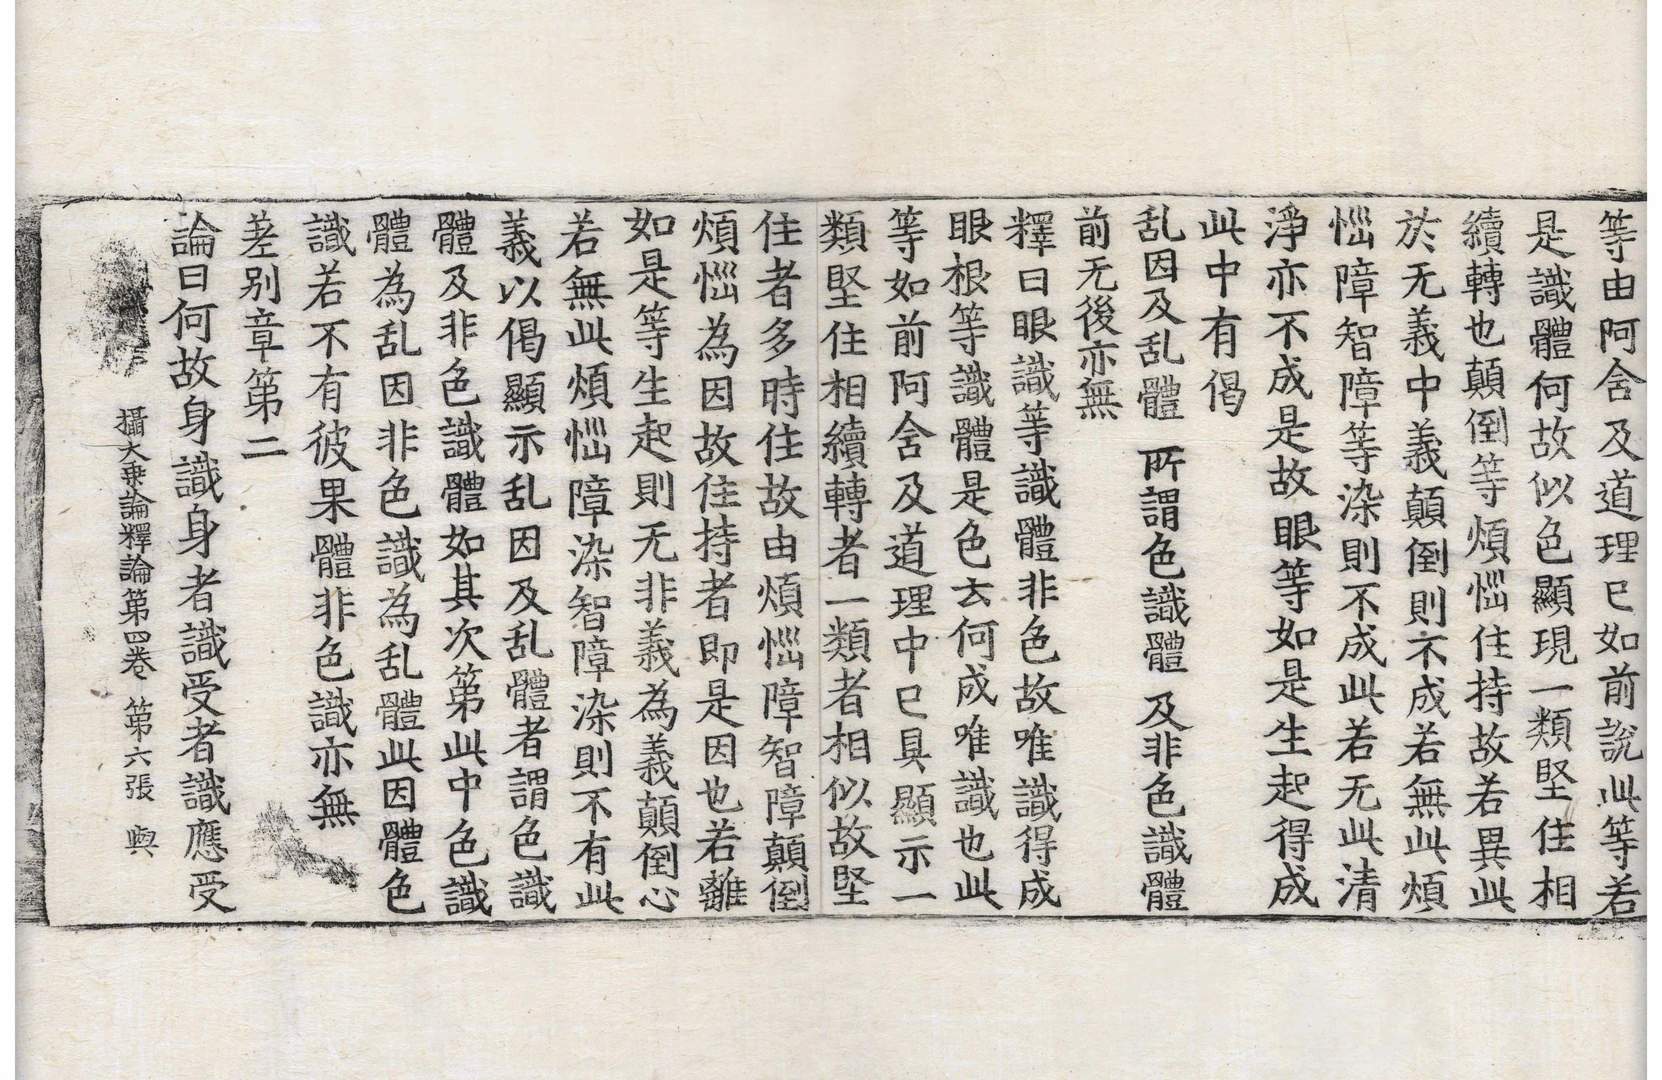 等由阿含及道理已如前說此等若
是識體何故似色顯現一類堅住相
續轉也顛倒等煩惱住持故若異此
於无義中義顛倒則不成若無此煩
惱障智障等染則不成此若无此清
淨亦不成是故眼等如是生起得成
此中有偈
乱因及乱體 所謂色識體 及非色識體
前无後亦無
釋曰眼識等識體非色故唯識得成
眼根等識體是色云何成唯識也此
等如前阿含及道理中已具顯示一
類堅住相續轉者一類者相似故堅
住者多時住故由煩惱障智障顛倒
煩惱為因故住持者即是因也若離
如是等生起則无非義為義顛倒心
若無此煩惱障染智障染則不有此
義以偈顯示乱因及乱體者謂色識
體及非色識體如其次第此中色識
體為乱因非色識為乱體此因體色
識若不有彼果體非色識亦無
差别章第二
論曰何故身識身者識受者識應受
攝大乗論釋論第四卷 第六張 輿